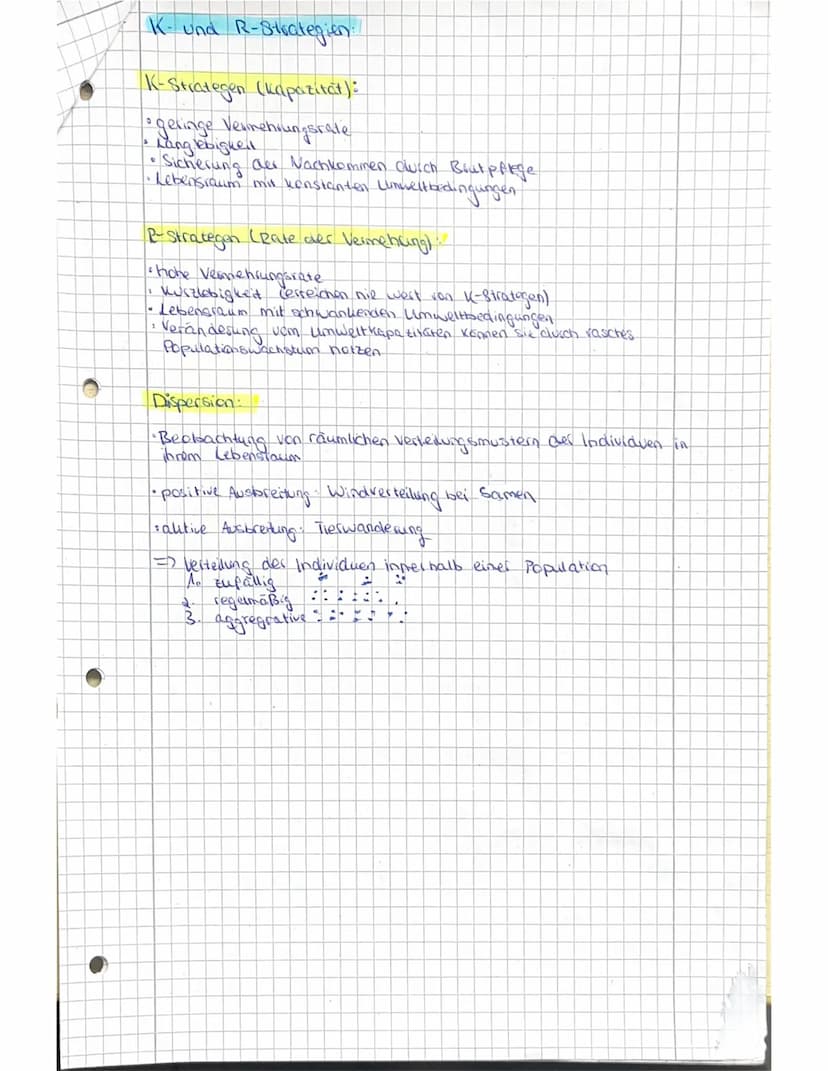 K- und R-Strategien:
K-Strategen (Kapazität):
• geringe Vermehrungsrate
• Langlebigkeit
• Sicherung der Nachkommen durch Brutpflege
• Lebensraum mit konstanten Umweltbedingungen
R-Strategen (Rate der Vermehrung):
• hohe Vermehrungsrate
• Kurzlebigkeit (erreichen nie Wert von K-Strategen)
• Lebensraum mit schwankenden Umweltbedingungen
• Veränderung vom Umweltkapazitäten können sie durch rasches
Populationswachstum nutzen
Dispersion:
• Beobachtung von räumlichen Verteilungsmustern der Individuen in
ihrem Lebensraum
• positive Ausbreitung: Windverteilung bei Samen
• aktive Ausbreitung: Tierwanderung
=> Verteilung der Individuen innerhalb einer Population
1. zufällig
2. regelmäßig
3. aggregrative